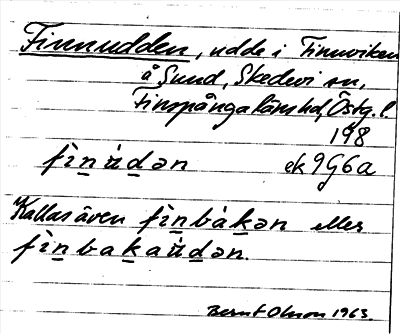 Finnudden, udde i Finnviken
å Sund, Skedevi sn,
Finspånga läns hd, Östg. l.
198
fìn̲ u̇d̲ən ek 9G6a
Kallas även fìn̲bàk̲ən eller
fìn̲bak̲au̇d̲ən.
Bernt Olsson 1963.